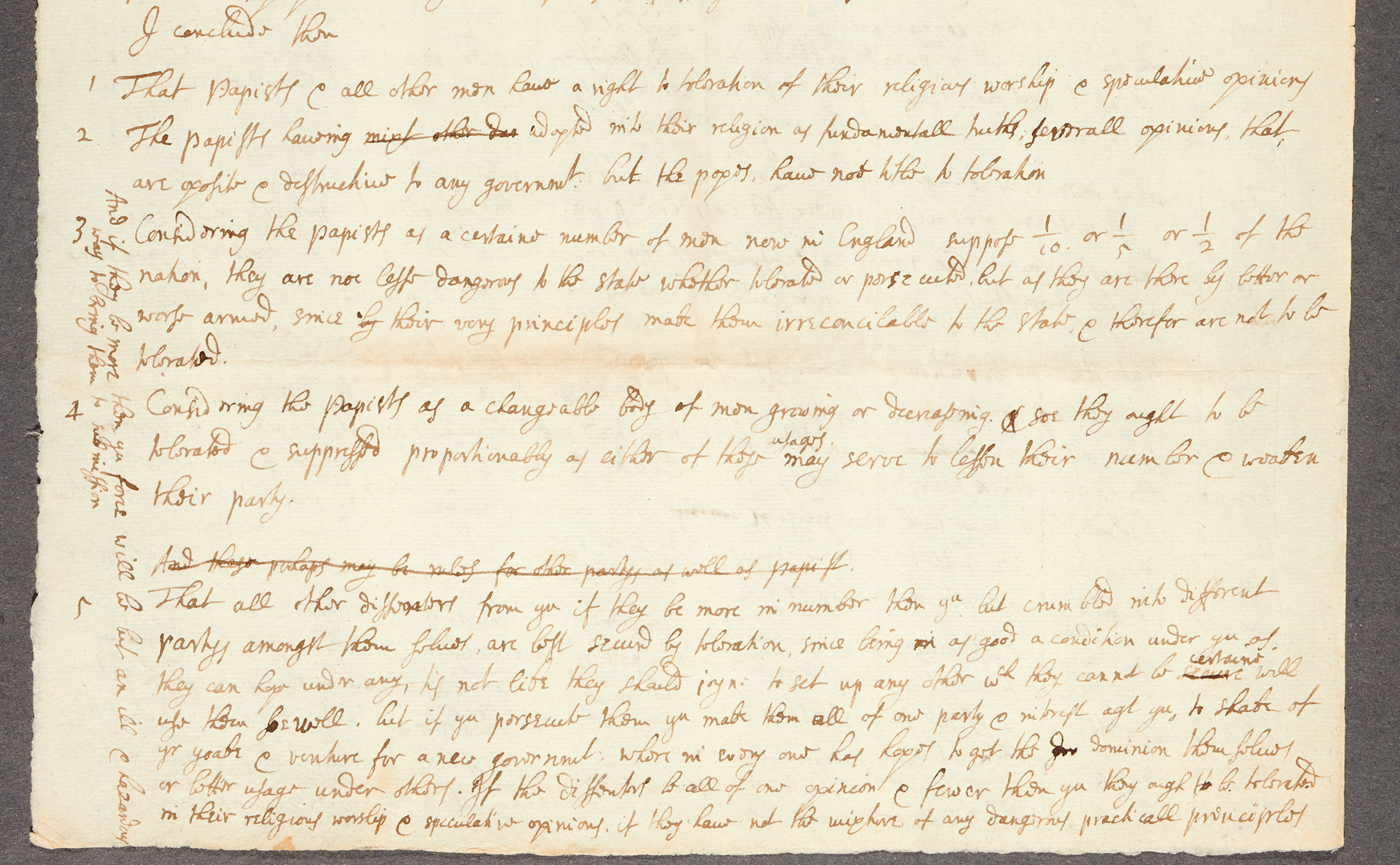 I conclude then
1 That Papists & all other men have a right to toleration of their religious worship & speculative opinions
2 The papists haveing mixt other adopted into their religion as fundamentall truths, severall opinions, that
are oposite & destructive to any governmt but the popes, have noe title to toleration
3 Considering the papists as a certaine number of men now in England suppose 1/10 or 1/5 or 1/2 of the
nation, they are noe lesse dangerous to the state whether tolerated or persecuted, but as they are there by better or
worse armed, since by their very principles make them irreconcilable to the state, & therfor are not to be
tolerated.
4 Considering the Papists as a changeable body of men growing or decreasing. soe they ought to be
tolerated & suppressed proportionably as either of these usages may serve to lessen their number & weaken
their party.
And these perhaps may be rules for other partys as well as papist.
5 That all other dissenters from yu if they be more in number then yu but crumbled into different
partys amongst them selves, are best secured by toleration, since being in as good a condition under yu as
they can hope under any, tis not like they should joyn to set up any other wch they cannot be secure certaine will
use them soe well. but if yu persecute them yu make them all of one party & interest agt yu, to shake of
yr yoake & venture for a new governmt where in every one has hopes to get the dominion themselves
or better usage under others. If the dissenters be all of one opinion & fewer then yu they ough to be tolerated
in their religious worship & speculative opinions. if they have not the mixture of any dangerous practicall principles
And if they be more then yu force will be but an ill & hazardous
way to bring them to submission